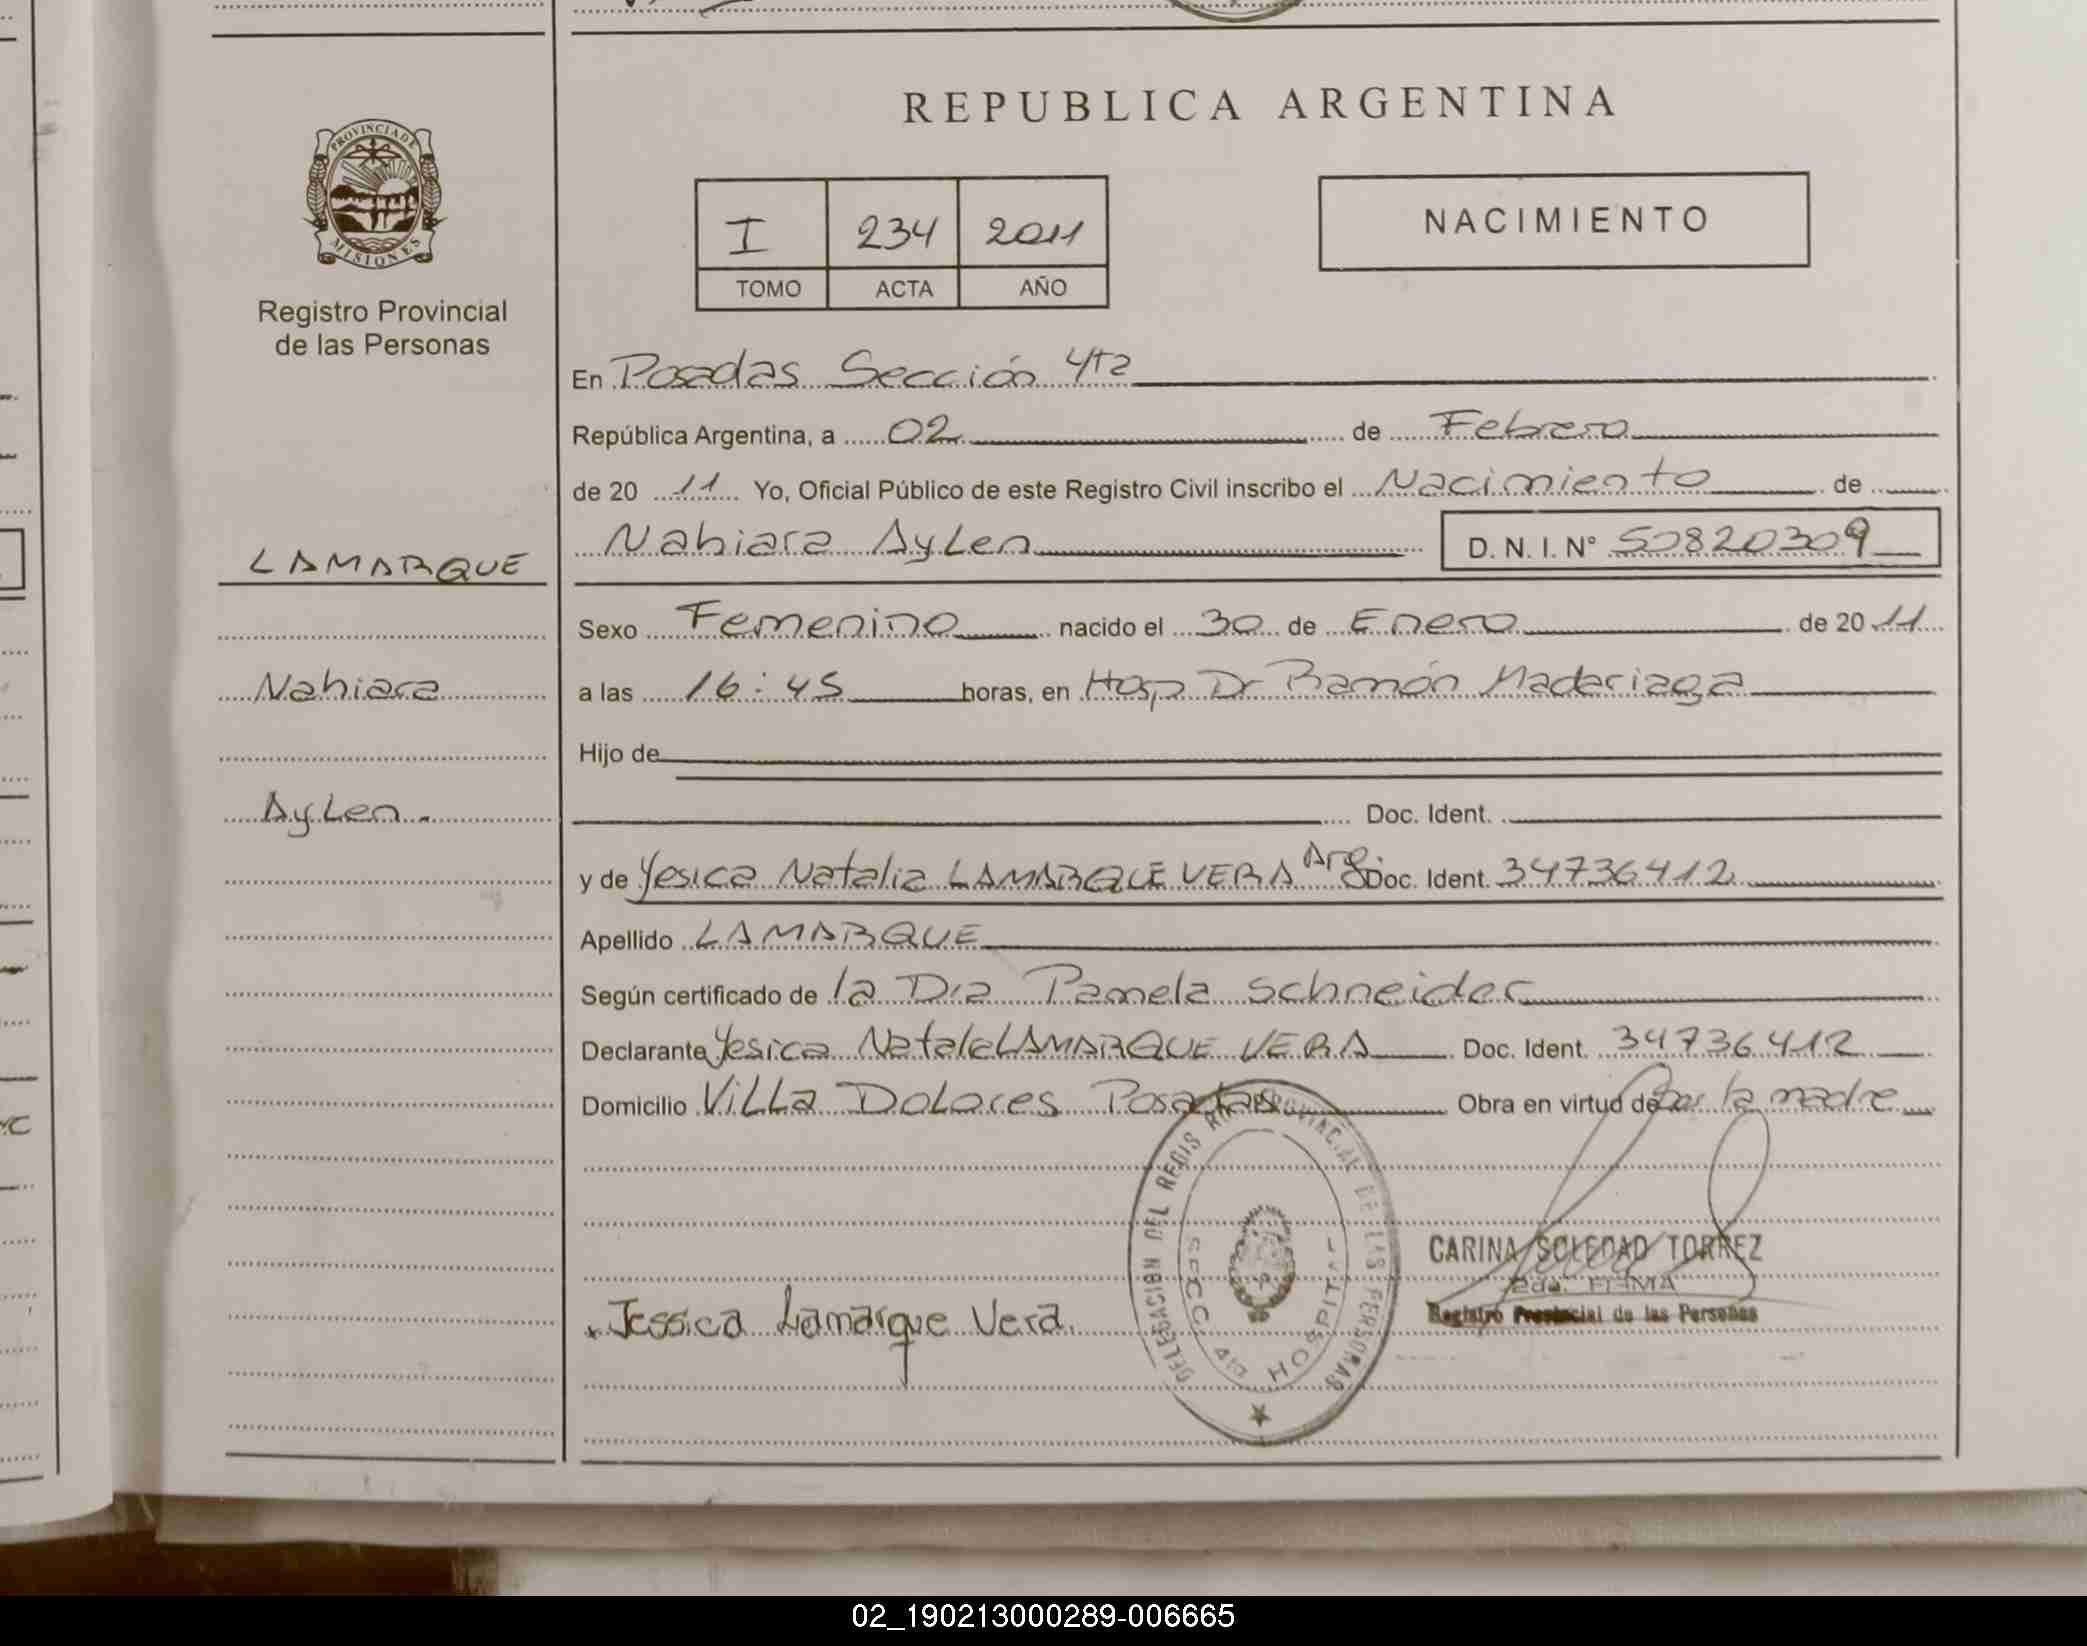 REPUBLICA ARGENTINA
PROVINCIA DE
MISIONES
Registro Provincial
de las Personas
I 234 2011
TOMO ACTA AÑO
NACIMIENTO
En Posadas Sección 4ta
República Argentina, a 02 de Febrero
de 20 11 Yo, Oficial Público de este Registro Civil inscribo el Nacimiento de
Nahiara Aylen D. N. I. N° 50820309
LAMARQUE
Nahiara
Aylen.
Sexo Femenino nacido el 30 de Enero de 20 11
a las 16:45 horas, en Hosp Dr Ramón Madariaga
Hijo de
Doc. Ident.
y de Yesica Natalia LAMARQUE VERA Arg. Doc. Ident. 34736412
Apellido LAMARQUE
Según certificado de la Dra Pamela Schneider
Declarante Yesica Natale LAMARQUE VERA Doc. Ident. 34736412
Domicilio Villa Dolores Posadas Obra en virtud de Ser la madre
DELEGACION DEL REGISTRO PROVINCIAL DE LAS PERSONAS
SECC. 4ta HOSPITAL
CARINA SOLEDAD TORREZ
2da. FIRMA
Registro Provincial de las Personas
Jessica Lamarque Vera.
02_190213000289-006665